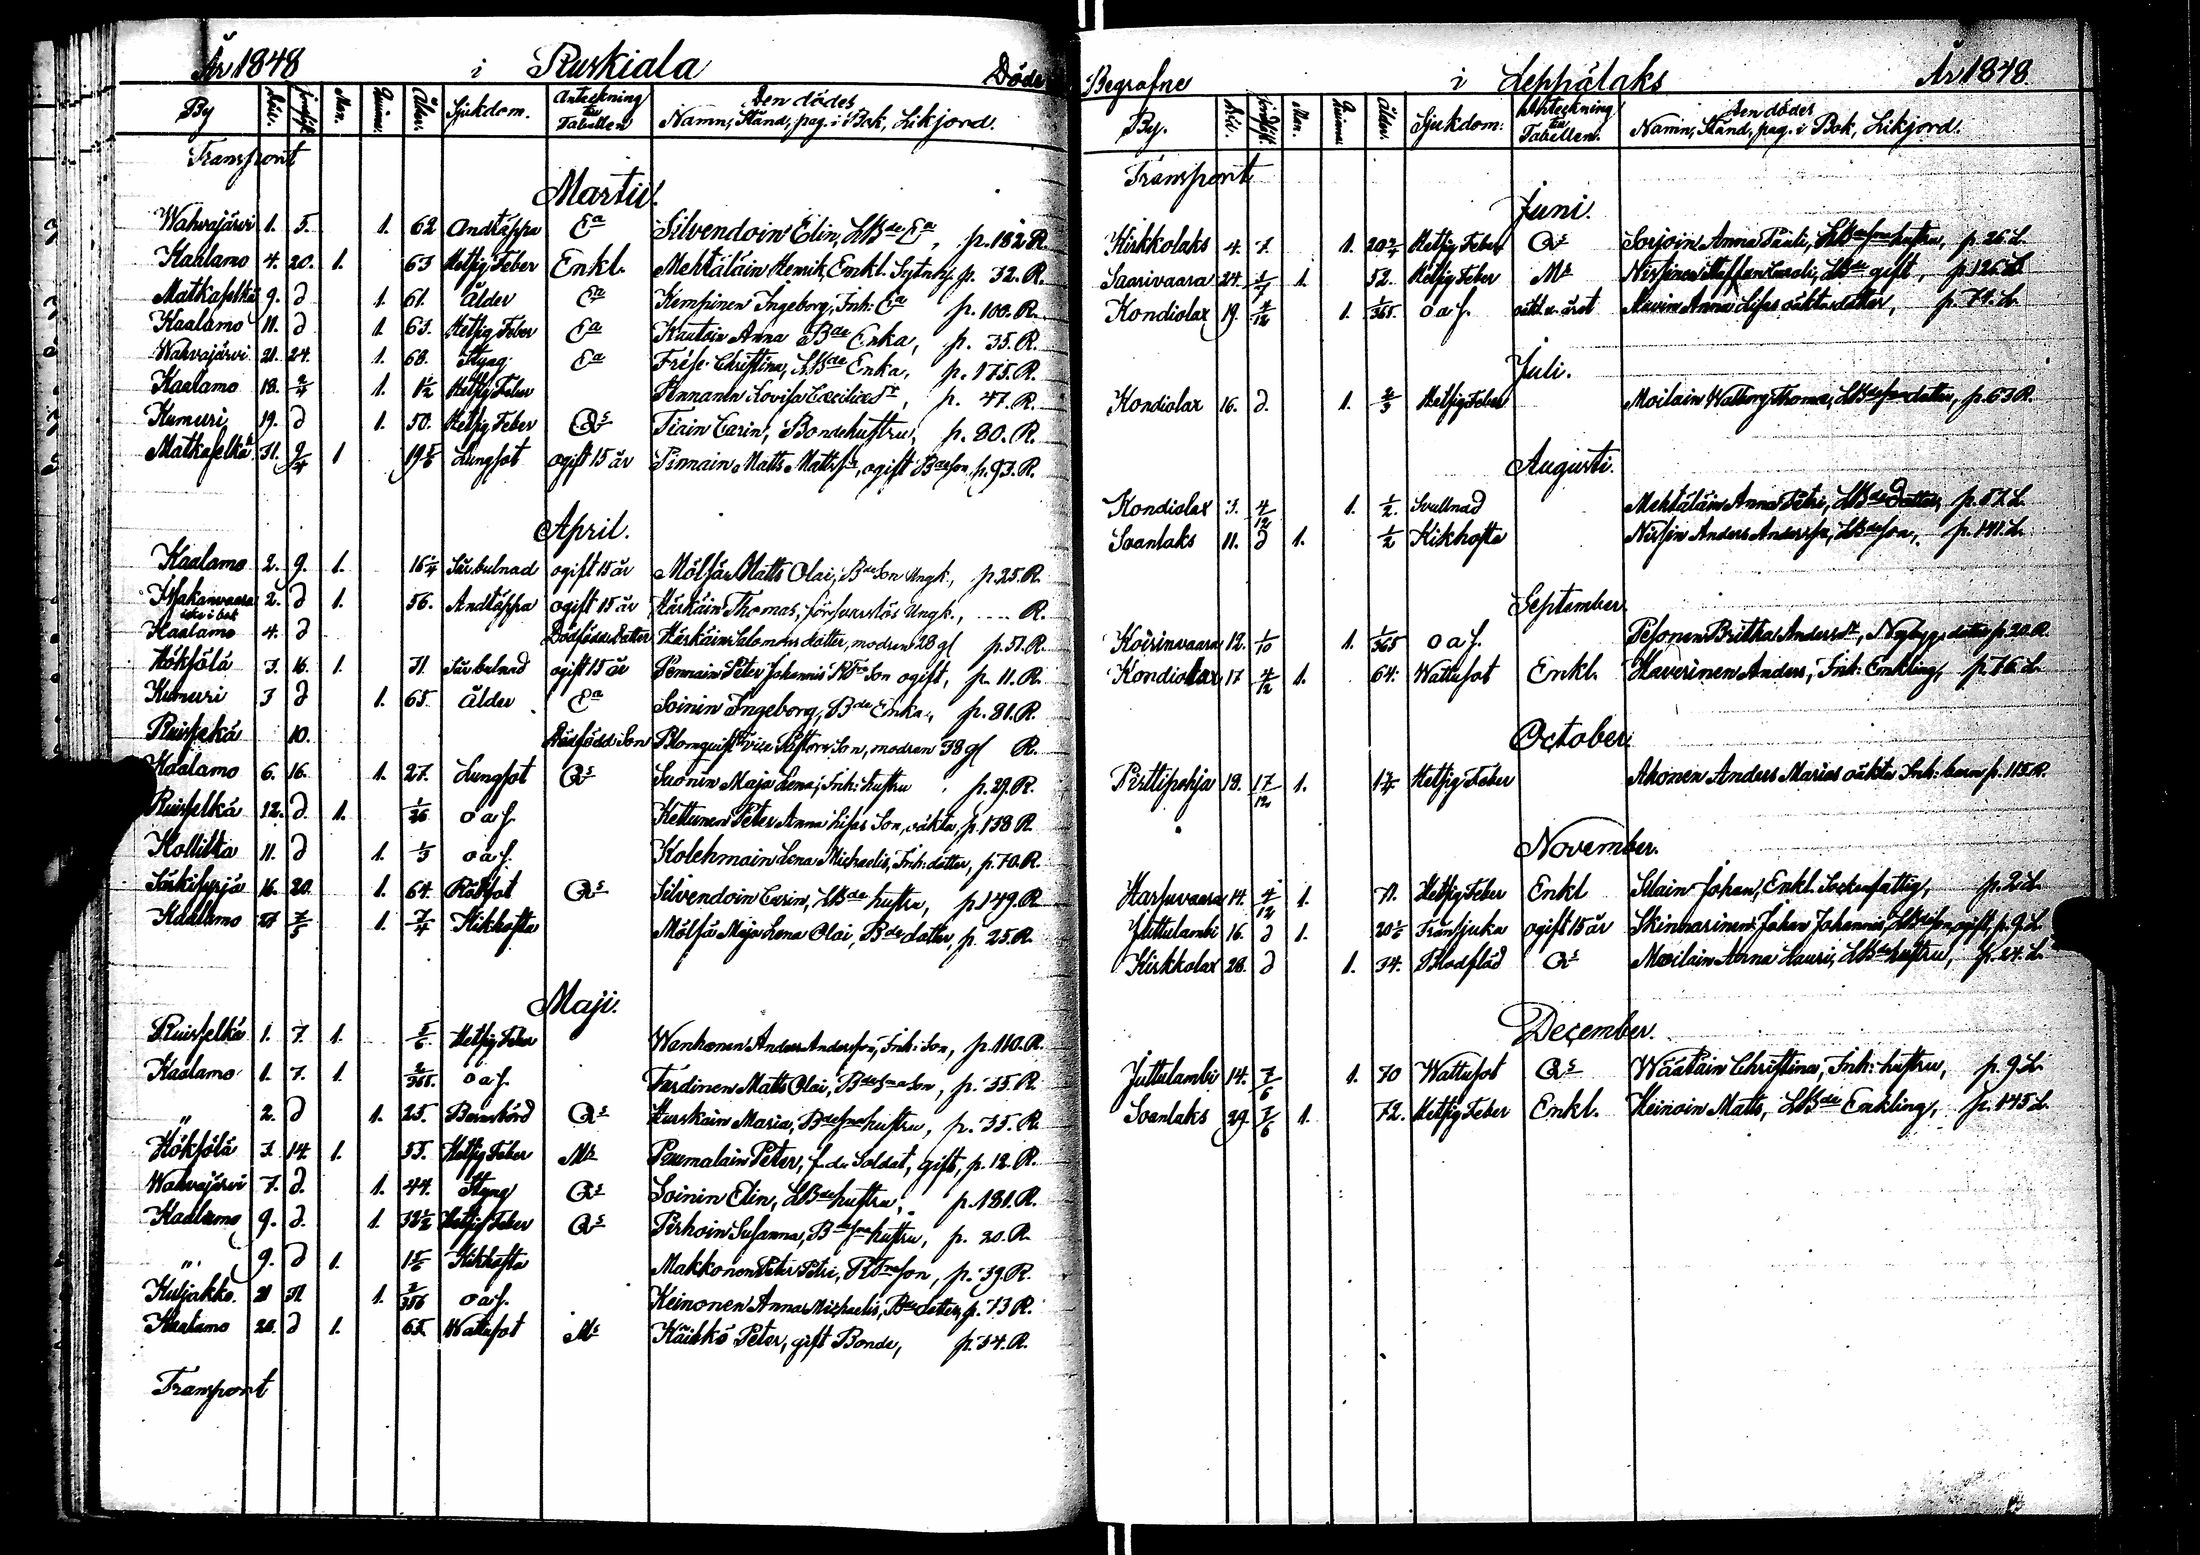 År 1848 i Ruskiala Döde
By Död. jordf. Män. Quinn. Ålder Sjukdom. Anteckning till Tabellen Den dödes Namn, Stånd, pag. i Bok, Likjord.
Transport
Martii.
Wahvajärvi 1. 5. 1. 62 Andtäppa Ea Silvendoin Elin, LBde Ea, p. 182 R.
Kaalamo 4. 20. 1. 63 Hetsig Feber Enkl. Mehtäläin Henrik, Enkl. Sytning p. 32. R.
Matkaselkä 9. d 1. 61. Ålder Ea Kempinen Ingeborg, Inh: Ea p. 100. R.
Kaalamo 11. d 1. 63. Hetsig Feber Ea Kautoin Anna Bde Enka, p. 35. R.
Wahvajärvi 21. 24. 1. 68. Styng Ea Frese Christina, LBde Enka, p. 175. R.
Kaalamo 18. 2/4 1. 1 1/2 Hetsig Feber Hinnanen Lovisa Cæciliæ Dr, p. 47. R.
Kumuri 19. d 1. 50. Hetsig Feber Qs Tiain Carin, Bondehustru, p. 80. R.
Matkaselkä 31. 9/4 1 19 5/6 Lungsot ogift 15 år Pinnain Matts Mattss., ogift Bdeson p. 93. R.
April.
Kaalamo 2. 9. 1. 16 1/4 Sårbulnad ogift 15 år Mölsä Matts Olai, Bde Son Ungk., p. 25. R.
2. d 1. 56. Andtäppa ogift 15 år Härkäin Thomas, försvarslös Ungk., .... R.
icke i bok
Kaalamo 4. d Dödfödd Dotter Härkäin Salomons dotter, modren 28 gl p. 51. R.
Hökkölä 3. 16. 1. 31 Sårbulnad ogift 15 år Pennain Peter Johannis Son ogift, p. 11. R.
Kumuri 3 d 1. 65. Ålder Ea Soinin Ingeborg, Bde Enka, p. 81. R.
Ruisselkä 10. Dödfödd Son Blomquist vice Pastors Son, modren 38 gl R.
Kaalamo 6. 16. 1. 27. Lungsot Qs Suonin Maja Lena, Inh: hustru p. 29. R.
Ruisselkä 12. d. 1. 1/26 o a f. Kettunen Peter Anna Lisas Son, oäkta, p. 138 R.
Kollitta 11. d 1. 1/3 o a f. Kolehmain Lena Michaelis, Inh: dotter, p. 70. R.
Särkisyrjä 16. 20. 1. 64. Rödsot Qs Silvendoin Carin, LBde hustru, p. 149. R.
Kaalamo 27 7/5 1. 7/4 Kikhosta Mölsä Maja Lena Olai, Bde dotter, p. 25. R.
Maji.
Ruisselkä 1. 7. 1. 5/6 Hetsig Feber Wanhanen Anders Andersson, Inh: Son, p. 110. R.
Kaalamo 1. 7. 1. 2/365. o a f. Tardinen Matts Olai, Bde Son, p. 35. R.
" 2. d 1. 25. Barnsbörd Qs Hurskain Maria, Bdesons hustru, p. 35. R.
Hökkölä 3. 14 1. 33. Hetsig Feber Mr Puumalain Peter, f. d. Soldat, gift, p. 12. R.
Wahvajärvi 7. d. 1. 44. Styng Qs Soinin Elin, LBde hustru, p. 181. R.
Kaalamo 9. d. 1. 32 1/2 Hetsig Feber Qs Pirhoin Susanna, Bdesons hustru, p. 20. R.
". 9. d 1. 1 5/6 Kikhosta Makkonen Peter Petri, son, p. 39. R.
Kuljakko 21 31 1. 2/366 o a f. Keinonen Anna Michaelis, Bde dotter, p. 73 R.
Kaalamo 20. d 1. 65. Wattusot Mr Käikkö Peter, gift Bonde, p. 34. R.
Transport
Begrafne i Leppälaks År 1848
By. Död. jordf. Män. Quinn Ålder Sjukdom: Anteckning till Tabellen. Den dödes Namn, Stånd, pag. i Bok, Likjord.
Transport
Juni.
Kirkkolaks 4. 7 1. 20 2/4 Hetsig Feber Qs Sorjoin Anna Pauli, hustru, p. 26. L.
Saarivaara 24. 1/7 1. 52. Hetsig Feber Mr Nissinen Steffan Lauali, LBde gift, p. 126 L.
Kondiolax 19. 4/12 1. 1/365. o a f. Anna Lisas oäkta dotter, p. 71. L.
Juli.
Kondiolax 16. d. 1. 2/3 Hetsig Feber Moilain Walborg Thomæ, LBdesons dotter, p. 63 R.
Augusti.
Kondiolax 3. 4/12 1. 1/2. Svullnad Mehtäläin Anna Petri, LBde Dotter, p. 57. L.
Soanlaks 11. d 1. 1/2 Kikhosta Nissin Anders Anderss., LBdeson, p. 141. L.
September.
Koirinvaara 12. 1/10 1. 1/365 o a f. Pesonen Britha Anders Dr, Nybygg. dotter p. 20. R.
Kondiolax 17 4/12 1. 64. Wattusot Enkl. Haverinen Anders, Inh: Enkling, p. 76. L.
October.
Pirttipohja 18. 17/12 1. 1 1/4 Hetsig Feber Ahonen Anders Marias oäkta Inh: barn p. 115. R.
November.
Harsuvaara 14. 4/12 1. 71. Hetsig Feber Enkl Silain Johan, Enkl. Sockenfattig, p. 2. L.
Juttulambi 16. d 1. 20 1/6 Fransjuka ogift 15 år Skinnarinen Johan Johannis, LBdeson, ogift, p. 9. L.
Kirkkolax 28. d 1. 34. Blodflöd Qs Moilain Anna Lauri, LBde hustru, p. 24. L.
December.
Juttulambi 14. 7/6 1. 70 Wattusot Qs Wäätäin Christina, Inh: hustru, p. 9. L.
Soanlaks 29. 7/6 1. 72. Hetsig Feber Enkl. Keinoin Matts, LBde Enkling, p. 145 L.